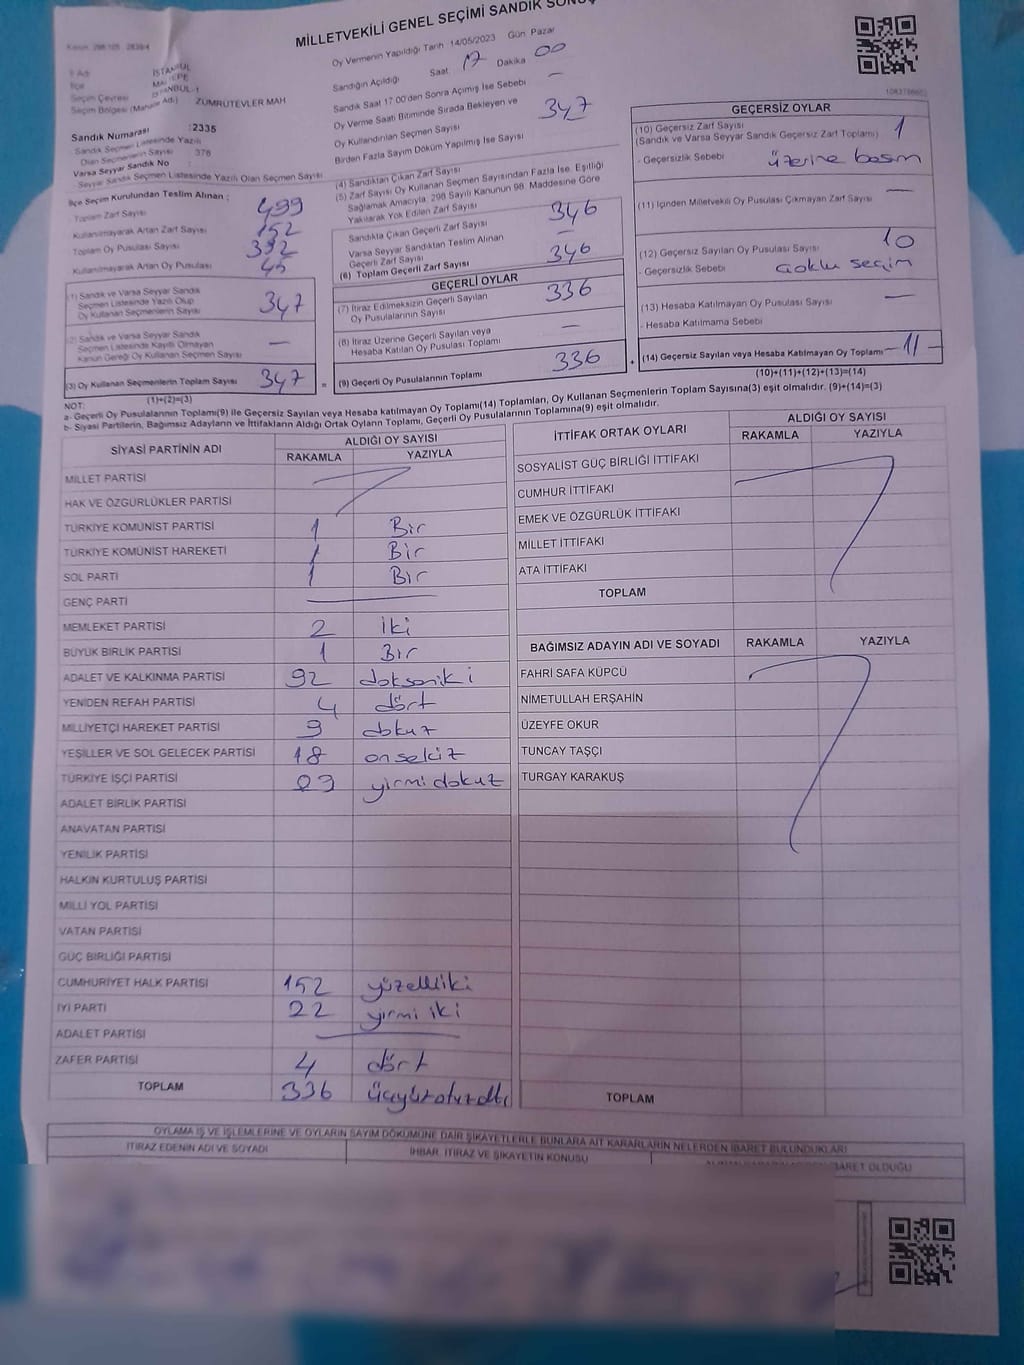 MİLLETVEKİLİ GENEL SEÇİMİ SANDIK
Oy Vermenin Yapıldığı Tarih 14/05/2023 Gün Pazar
Sandığın Açıldığı Saat 17 Dakika 00
Sandık Saat 17.00'den Sonra Açımış İse Sebebi —
Oy Verme Saati Bitiminde Sırada Bekleyen ve
Oy Kullandırılan Seçmen Sayısı 347
Birden Fazla Sayım Döküm Yapılmış İse Sayısı
İlçe
İSTANBUL
MALTEPE
İSTANBUL-1
Seçim Çevresi
Seçim Bölgesi (Mahalle Adı) ZÜMRÜTEVLER MAH
Sandık Numarası : 2335
Sandık Seçmen Listesinde Yazılı
Olan Seçmenlerin Sayısı : 376
Varsa Seyyar Sandık No
Seyyar Sandık Seçmen Listesinde Yazılı Olan Seçmen Sayısı
İlçe Seçim Kurulundan Teslim Alınan ;
Toplam Zarf Sayısı 499
Kullanılmayarak Artan Zarf Sayısı 152
Toplam Oy Pusulası Sayısı
Kullanılmayarak Artan Oy Pusulası 45
(1) Sandık ve Varsa Seyyar Sandık
Seçmen Listesinde Yazılı Olup
Oy Kullanan Seçmenlerin Sayısı 347
(2) Sandık ve Varsa Seyyar Sandık
Seçmen Listesinde Kayıtlı Olmayan
Kanun Gereği Oy Kullanan Seçmen Sayısı —
(3) Oy Kullanan Seçmenlerin Toplam Sayısı 347 =
(1)+(2)=(3)
(4) Sandıktan Çıkan Zarf Sayısı
(5) Zarf Sayısı Oy Kullanan Seçmen Sayısından Fazla İse, Eşitliği
Sağlamak Amacıyla, 298 Sayılı Kanunun 98. Maddesine Göre
Yakılarak Yok Edilen Zarf Sayısı
Sandıkta Çıkan Geçerli Zarf Sayısı 346
Varsa Seyyar Sandıktan Teslim Alınan
Geçerli Zarf Sayısı —
(6) Toplam Geçerli Zarf Sayısı 346
GEÇERLİ OYLAR
(7) İtiraz Edilmeksizin Geçerli Sayılan
Oy Pusulalarının Sayısı 336
(8) İtiraz Üzerine Geçerli Sayılan veya
Hesaba Katılan Oy Pusulası Toplamı —
(9) Geçerli Oy Pusulalarının Toplamı 336 +
GEÇERSİZ OYLAR
(10) Geçersiz Zarf Sayısı 1
(Sandık ve Varsa Seyyar Sandık Geçersiz Zarf Toplamı)
- Geçersizlik Sebebi üzerine basım
(11) İçinden Milletvekili Oy Pusulası Çıkmayan Zarf Sayısı —
(12) Geçersiz Sayılan Oy Pusulası Sayısı 10
- Geçersizlik Sebebi Çoklu seçim
(13) Hesaba Katılmayan Oy Pusulası Sayısı —
- Hesaba Katılmama Sebebi
(14) Geçersiz Sayılan veya Hesaba Katılmayan Oy Toplamı —11—
(10)+(11)+(12)+(13)=(14)
NOT:
a- Geçerli Oy Pusulalarının Toplamı(9) ile Geçersiz Sayılan veya Hesaba katılmayan Oy Toplamı(14) Toplamları, Oy Kullanan Seçmenlerin Toplam Sayısına(3) eşit olmalıdır. (9)+(14)=(3)
b- Siyasi Partilerin, Bağımsız Adayların ve İttifakların Aldığı Ortak Oyların Toplamı, Geçerli Oy Pusulalarının Toplamına(9) eşit olmalıdır.
SİYASİ PARTİNİN ADI
ALDIĞI OY SAYISI
RAKAMLA YAZIYLA
MİLLET PARTİSİ
HAK VE ÖZGÜRLÜKLER PARTİSİ
TÜRKİYE KOMÜNİST PARTİSİ 1 Bir
TÜRKİYE KOMÜNİST HAREKETİ 1 Bir
SOL PARTİ 1 Bir
GENÇ PARTİ —
MEMLEKET PARTİSİ 2 iki
BÜYÜK BİRLİK PARTİSİ 1 Bir
ADALET VE KALKINMA PARTİSİ 92 doksaniki
YENİDEN REFAH PARTİSİ 4 dört
MİLLİYETÇİ HAREKET PARTİSİ 9 dokuz
YEŞİLLER VE SOL GELECEK PARTİSİ 18 onsekiz
TÜRKİYE İŞÇİ PARTİSİ 29 yirmidokuz
ADALET BİRLİK PARTİSİ
ANAVATAN PARTİSİ
YENİLİK PARTİSİ
HALKIN KURTULUŞ PARTİSİ
MİLLİ YOL PARTİSİ
VATAN PARTİSİ
GÜÇ BİRLİĞİ PARTİSİ
CUMHURİYET HALK PARTİSİ 152 yüzelliiki
İYİ PARTİ 22 yirmi iki
ADALET PARTİSİ —
ZAFER PARTİSİ 4 dört
TOPLAM 336 üçyüzotuzaltı
İTTİFAK ORTAK OYLARI
ALDIĞI OY SAYISI
RAKAMLA YAZIYLA
SOSYALİST GÜÇ BİRLİĞİ İTTİFAKI
CUMHUR İTTİFAKI
EMEK VE ÖZGÜRLÜK İTTİFAKI
MİLLET İTTİFAKI
ATA İTTİFAKI
TOPLAM
BAĞIMSIZ ADAYIN ADI VE SOYADI RAKAMLA YAZIYLA
FAHRİ SAFA KÜPCÜ
NİMETULLAH ERŞAHİN
ÜZEYFE OKUR
TUNCAY TAŞÇI
TURGAY KARAKUŞ
TOPLAM
OYLAMA İŞ VE İŞLEMLERİNE VE OYLARIN SAYIM DÖKÜMÜNE DAİR ŞİKAYETLERLE BUNLARA AİT KARARLARIN NELERDEN İBARET BULUNDUKLARI
İTİRAZ EDENİN ADI VE SOYADI
İHBAR, İTİRAZ VE ŞİKAYETİN KONUSU